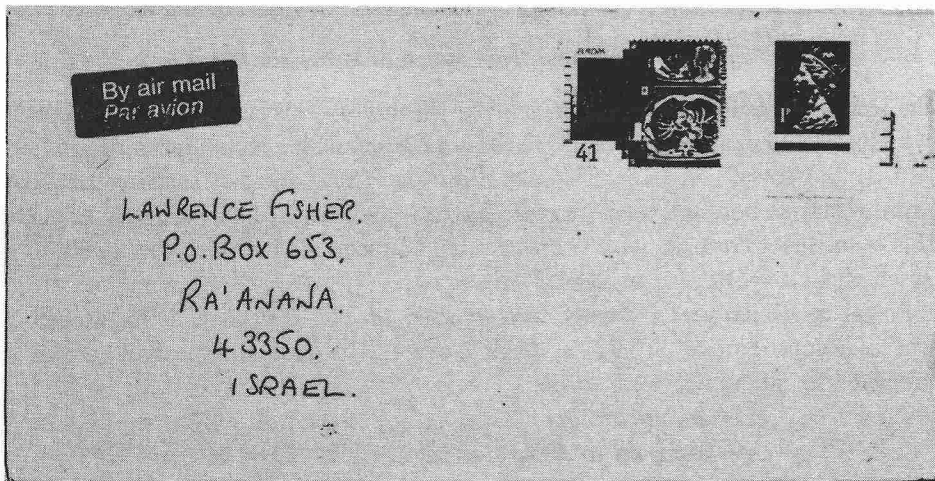 By air mail
Par avion
41
1P
LAWRENCE FISHER.
P.O. BOX 653,
RA'ANANA.
43350,
ISRAEL.